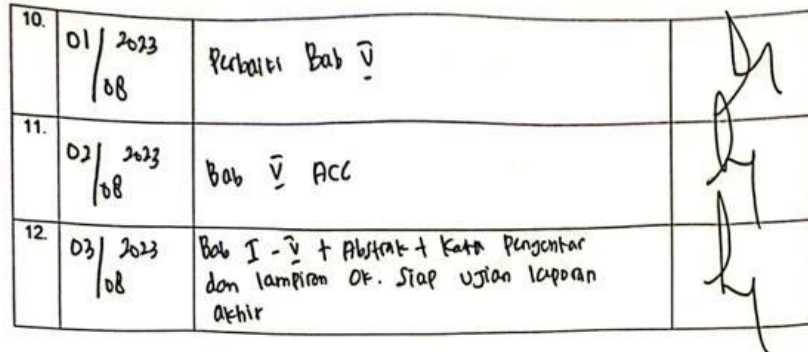 10.
01/08 2023
Perbaiki Bab V
11.
02/08 2023
Bab V ACC
12.
03/08 2023
Bab I - V + Abstrak + Kata Pengantar
dan lampiran Ok. Siap Ujian laporan
akhir